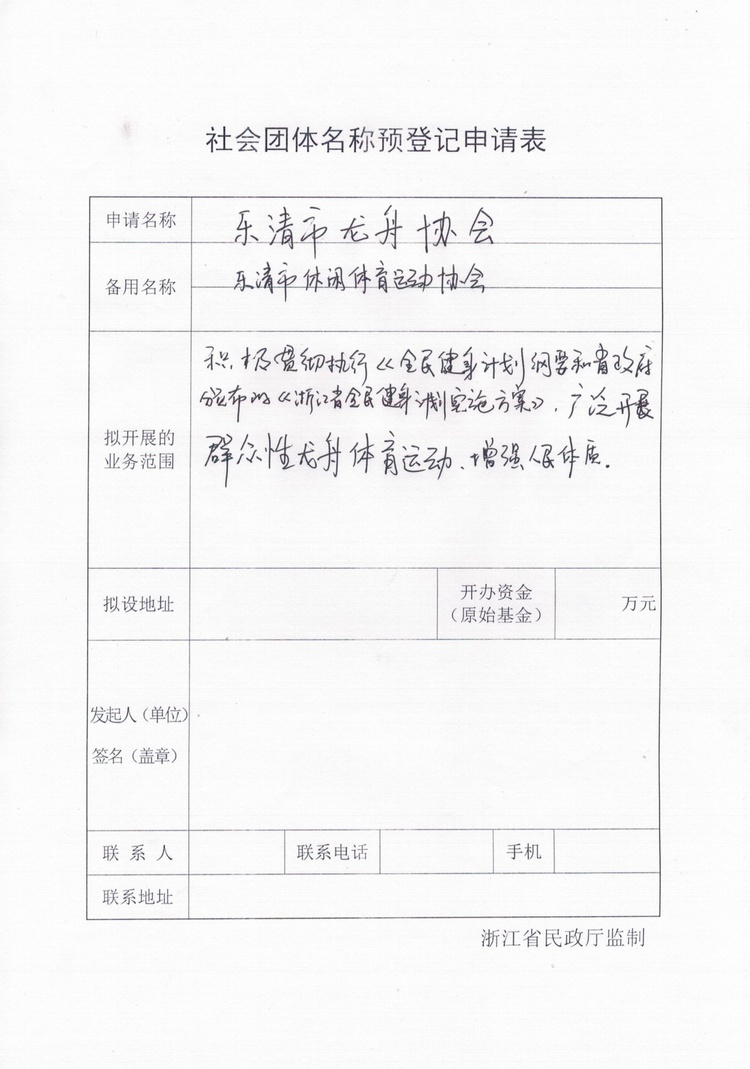 社会团体名称预登记申请表
申请名称 乐清市龙舟协会
备用名称 乐清市休闲体育运动协会
拟开展的
业务范围
积极贯彻执行《全民健身计划纲要和省政府
颁布的《浙江省全民健身计划实施方案》，广泛开展
群众性龙舟体育运动、增强人民体质.
拟设地址 开办资金 万元
（原始基金）
发起人（单位）
签名（盖章）
联 系 人 联系电话 手机
联系地址
浙江省民政厅监制